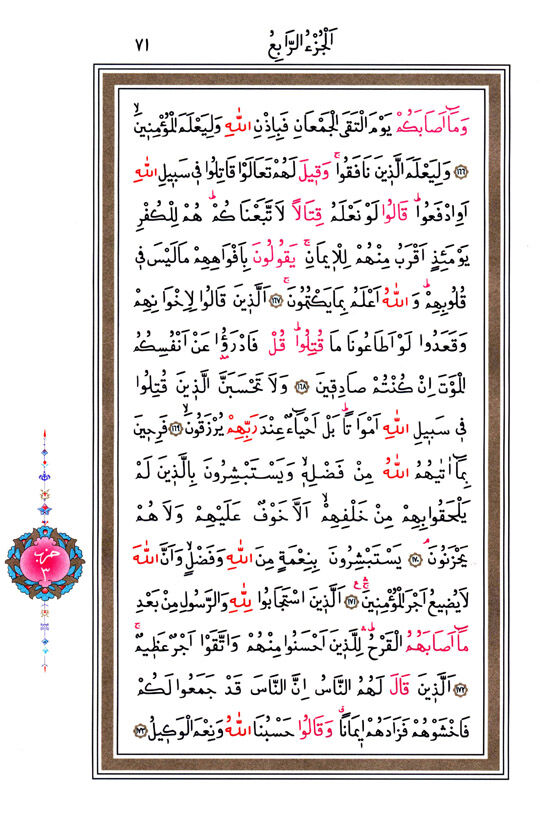 ٧١ اَلْجُزْءُ الرَّابِعُ
وَمَٓا اَصَابَكُمْ يَوْمَ الْتَقَى الْجَمْعَانِ فَبِاِذْنِ اللّٰهِ وَلِيَعْلَمَ الْمُؤْمِن۪ينَۙ
﴿١٦٦﴾ وَلِيَعْلَمَ الَّذ۪ينَ نَافَقُواۚ وَق۪يلَ لَهُمْ تَعَالَوْا قَاتِلُوا ف۪ي سَب۪يلِ اللّٰهِ
اَوِ ادْفَعُواۜ قَالُوا لَوْ نَعْلَمُ قِتَالًا لَاتَّبَعْنَاكُمْۜ هُمْ لِلْكُفْرِ
يَوْمَئِذٍ اَقْرَبُ مِنْهُمْ لِلْا۪يمَانِۚ يَقُولُونَ بِاَفْوَاهِهِمْ مَا لَيْسَ ف۪ي
قُلُوبِهِمْۜ وَاللّٰهُ اَعْلَمُ بِمَا يَكْتُمُونَۚ ﴿١٦٧﴾ اَلَّذ۪ينَ قَالُوا لِاِخْوَانِهِمْ
وَقَعَدُوا لَوْ اَطَاعُونَا مَا قُتِلُواۜ قُلْ فَادْرَؤُ۫ا عَنْ اَنْفُسِكُمُ
الْمَوْتَ اِنْ كُنْتُمْ صَادِق۪ينَ ﴿١٦٨﴾ وَلَا تَحْسَبَنَّ الَّذ۪ينَ قُتِلُوا
ف۪ي سَب۪يلِ اللّٰهِ اَمْوَاتًاۜ بَلْ اَحْيَٓاءٌ عِنْدَ رَبِّهِمْ يُرْزَقُونَۙ ﴿١٦٩﴾ فَرِح۪ينَ
بِمَٓا اٰتٰيهُمُ اللّٰهُ مِنْ فَضْلِه۪ۙ وَيَسْتَبْشِرُونَ بِالَّذ۪ينَ لَمْ
يَلْحَقُوا بِهِمْ مِنْ خَلْفِهِمْۙ اَلَّا خَوْفٌ عَلَيْهِمْ وَلَا هُمْ
يَحْزَنُونَۢ ﴿١٧٠﴾ يَسْتَبْشِرُونَ بِنِعْمَةٍ مِنَ اللّٰهِ وَفَضْلٍۙ وَاَنَّ اللّٰهَ
لَا يُض۪يعُ اَجْرَ الْمُؤْمِن۪ينَۚۛ ﴿١٧١﴾ اَلَّذ۪ينَ اسْتَجَابُوا لِلّٰهِ وَالرَّسُولِ مِنْ بَعْدِ
مَٓا اَصَابَهُمُ الْقَرْحُۜۛ لِلَّذ۪ينَ اَحْسَنُوا مِنْهُمْ وَاتَّقَوْا اَجْرٌ عَظ۪يمٌۚ
﴿١٧٢﴾ اَلَّذ۪ينَ قَالَ لَهُمُ النَّاسُ اِنَّ النَّاسَ قَدْ جَمَعُوا لَكُمْ
فَاخْشَوْهُمْ فَزَادَهُمْ ا۪يمَانًاۗ وَقَالُوا حَسْبُنَا اللّٰهُ وَنِعْمَ الْوَك۪يلُ ﴿١٧٣﴾
حزب
٣